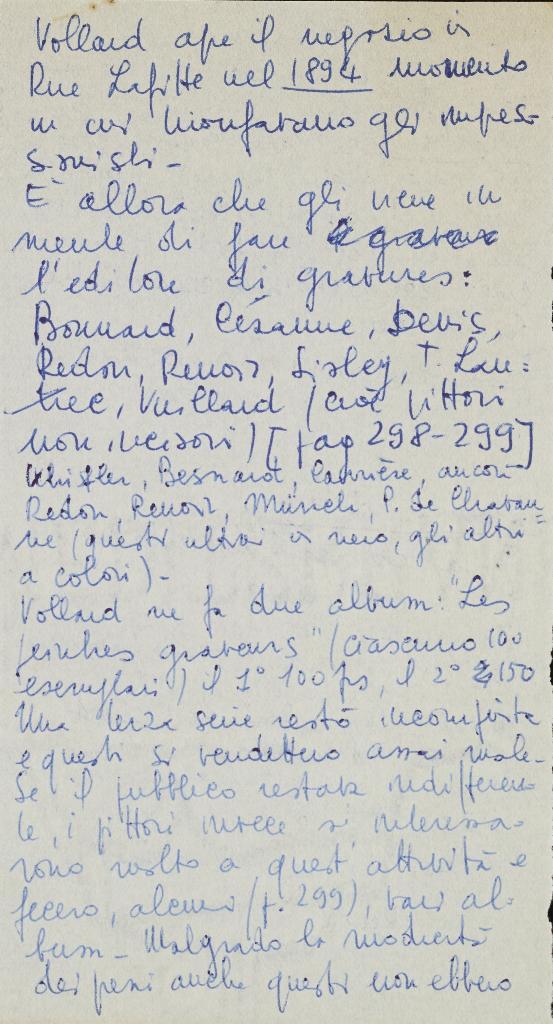 Vollard apre il negozio in
Rue Lafitte nel 1894 momento
in cui trionfavano gli impres-
sionisti -
È allora che gli viene in
mente di fare
l'editore di gravures:
Bonnard, Césanne, Denis,
Redon, Renoir, Sisley, T. Lau=
trec, Vuillard (cioè pittori
non incisori) [pag 298-299]
Whistler, Besnard, Carrière, ancora
Redon, Renoir, Münch, P. de Chavan=
ne (questi ultimi in nero, gli altri
a colori) -
Vollard ne fa due album: "Les
peintres graveurs" (ciascuno 100
esemplari) il 1° 100 frs, il 2° 150
Una terza serie restò incompiuta
e questi si vendettero assai male -
Se il pubblico restava indifferen-
te, i pittori invece si interessa-
rono molto a quest' attività e
fecero, alcuni (p. 299), vari al-
bum - Malgrado la modestà
dei prezzi anche questi non ebbero